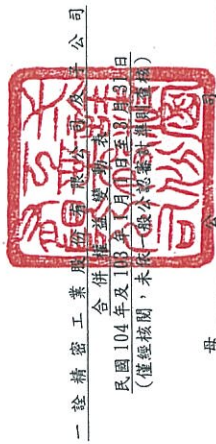 一詮精密工業股份有限公司及子公司
合併權益變動表
民國104年及103年1月1日至3月31日
(僅經核閱，未依一般公認審計準則查核)
母 公 司